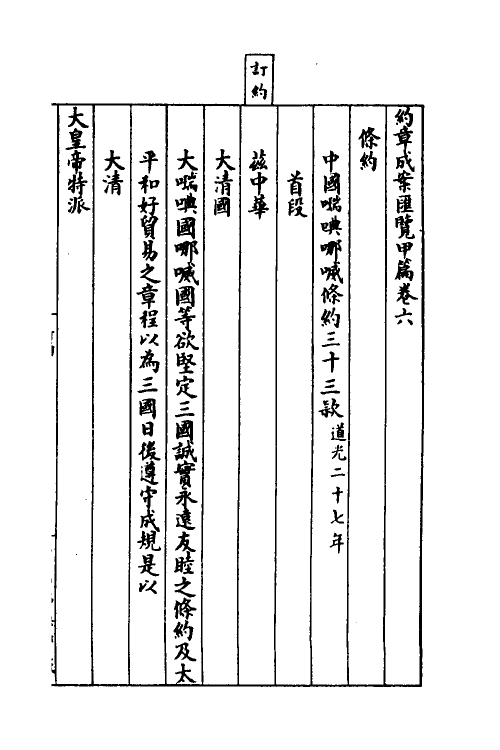 訂約
約章成案匯覽甲篇卷六
條約
中國㗨㖠哪嘁條約三十三款道光二十七年
首段
茲中華
大清國
大㗨㖠國哪嘁國等欲堅定三國誠實永遠友睦之條約及太
平和好貿易之章程以為三國日後遵守成規是以
大清
大皇帝特派